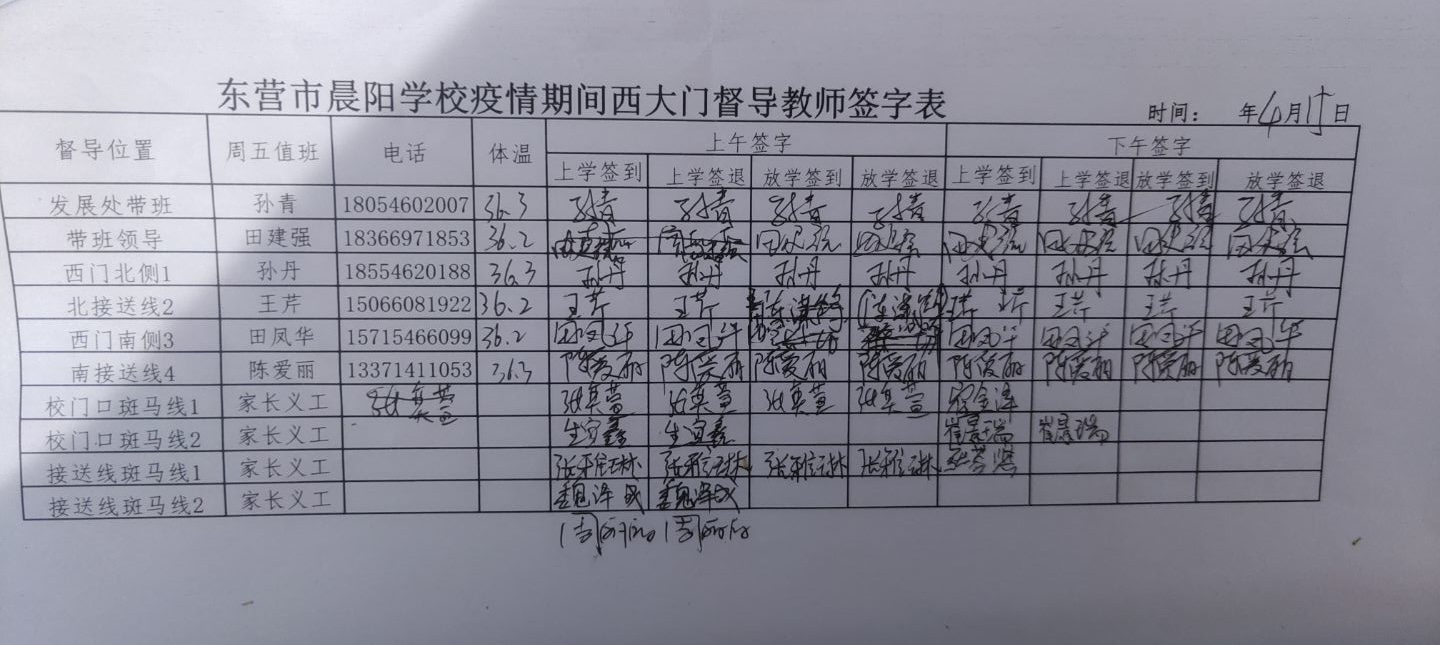 东营市晨阳学校疫情期间西大门督导教师签字表
时间： 年4月 日
督导位置 周五值班 电话 体温 上午签字 下午签字
上学签到 上学签退 放学签到 放学签退 上学签到 上学签退 放学签到 放学签退
发展处带班 孙青 18054602007 36.3 孙青 孙青 孙青 孙青 孙青 孙青 孙青 孙青
带班领导 田建强 18366971853 36.2 田建强 田建强 田建强 田建强 田建强 田建强
西门北侧1 孙丹 18554620188 36.3 孙丹 孙丹 孙丹 孙丹 孙丹 孙丹 孙丹 孙丹
北接送线2 王芹 15066081922 36.2 王芹 王芹 王芹 王芹 王芹 王芹
西门南侧3 田凤华 15715466099 36.2 田凤华 田凤华 田凤华 田凤华 田凤华 田凤华
南接送线4 陈爱丽 13371411053 36.3 陈爱丽 陈爱丽 陈爱丽 陈爱丽 陈爱丽 陈爱丽 陈爱丽 陈爱丽
校门口斑马线1 家长义工 张 张 张 张 张
校门口斑马线2 家长义工 生宜鑫 生宜鑫 崔晨瑞 崔晨瑞
接送线斑马线1 家长义工 张雅琳 张雅琳 张雅琳 张雅琳
接送线斑马线2 家长义工 魏泽 魏泽